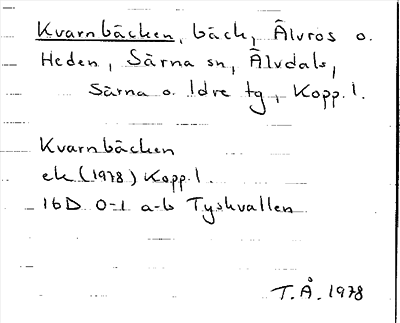 Kvarnbäcken, bäck, Älvros o.
Heden, Särna sn, Älvdals,
Särna o. Idre tg, Kopp. l.
Kvarnbäcken
ek (1978) Kopp. l.
16D 0-1 a-b Tyskvallen
T.Å. 1978